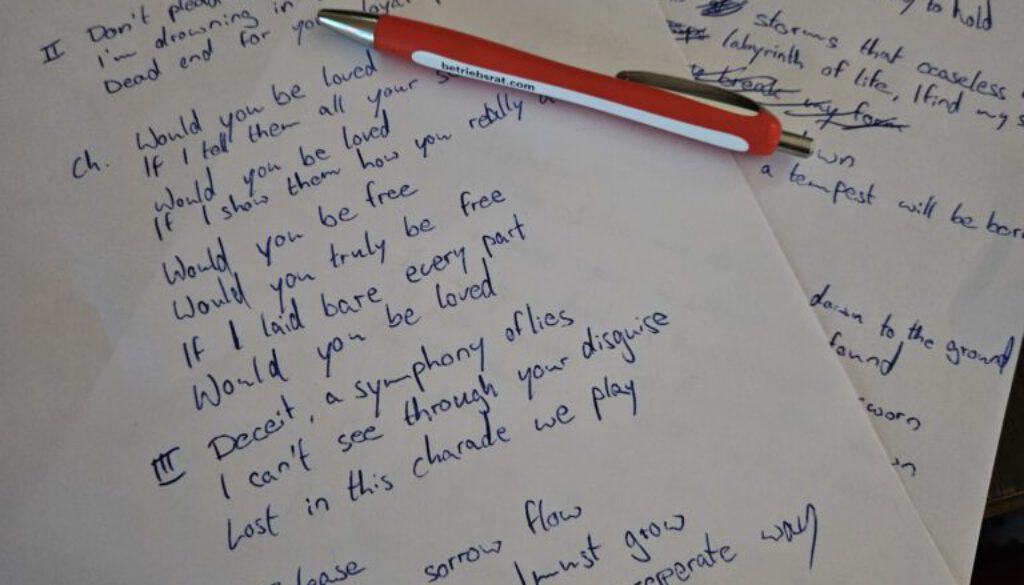 II Don't
I'm drowning in
Dead end for
Ch. Would you be loved
If I tell them all your
Would you be loved
If I show them how you really
Would you be free
Would you truly be free
If I laid bare every part
Would you be loved
III Deceit, a symphony of lies
I can't see through your disguise
Lost in this charade we play
sorrow flow
must grow
way
betriebsrat.com
to hold
storms that
labyrinth of life, I find my
break my form
a tempest will be
down to the ground
found
sworn